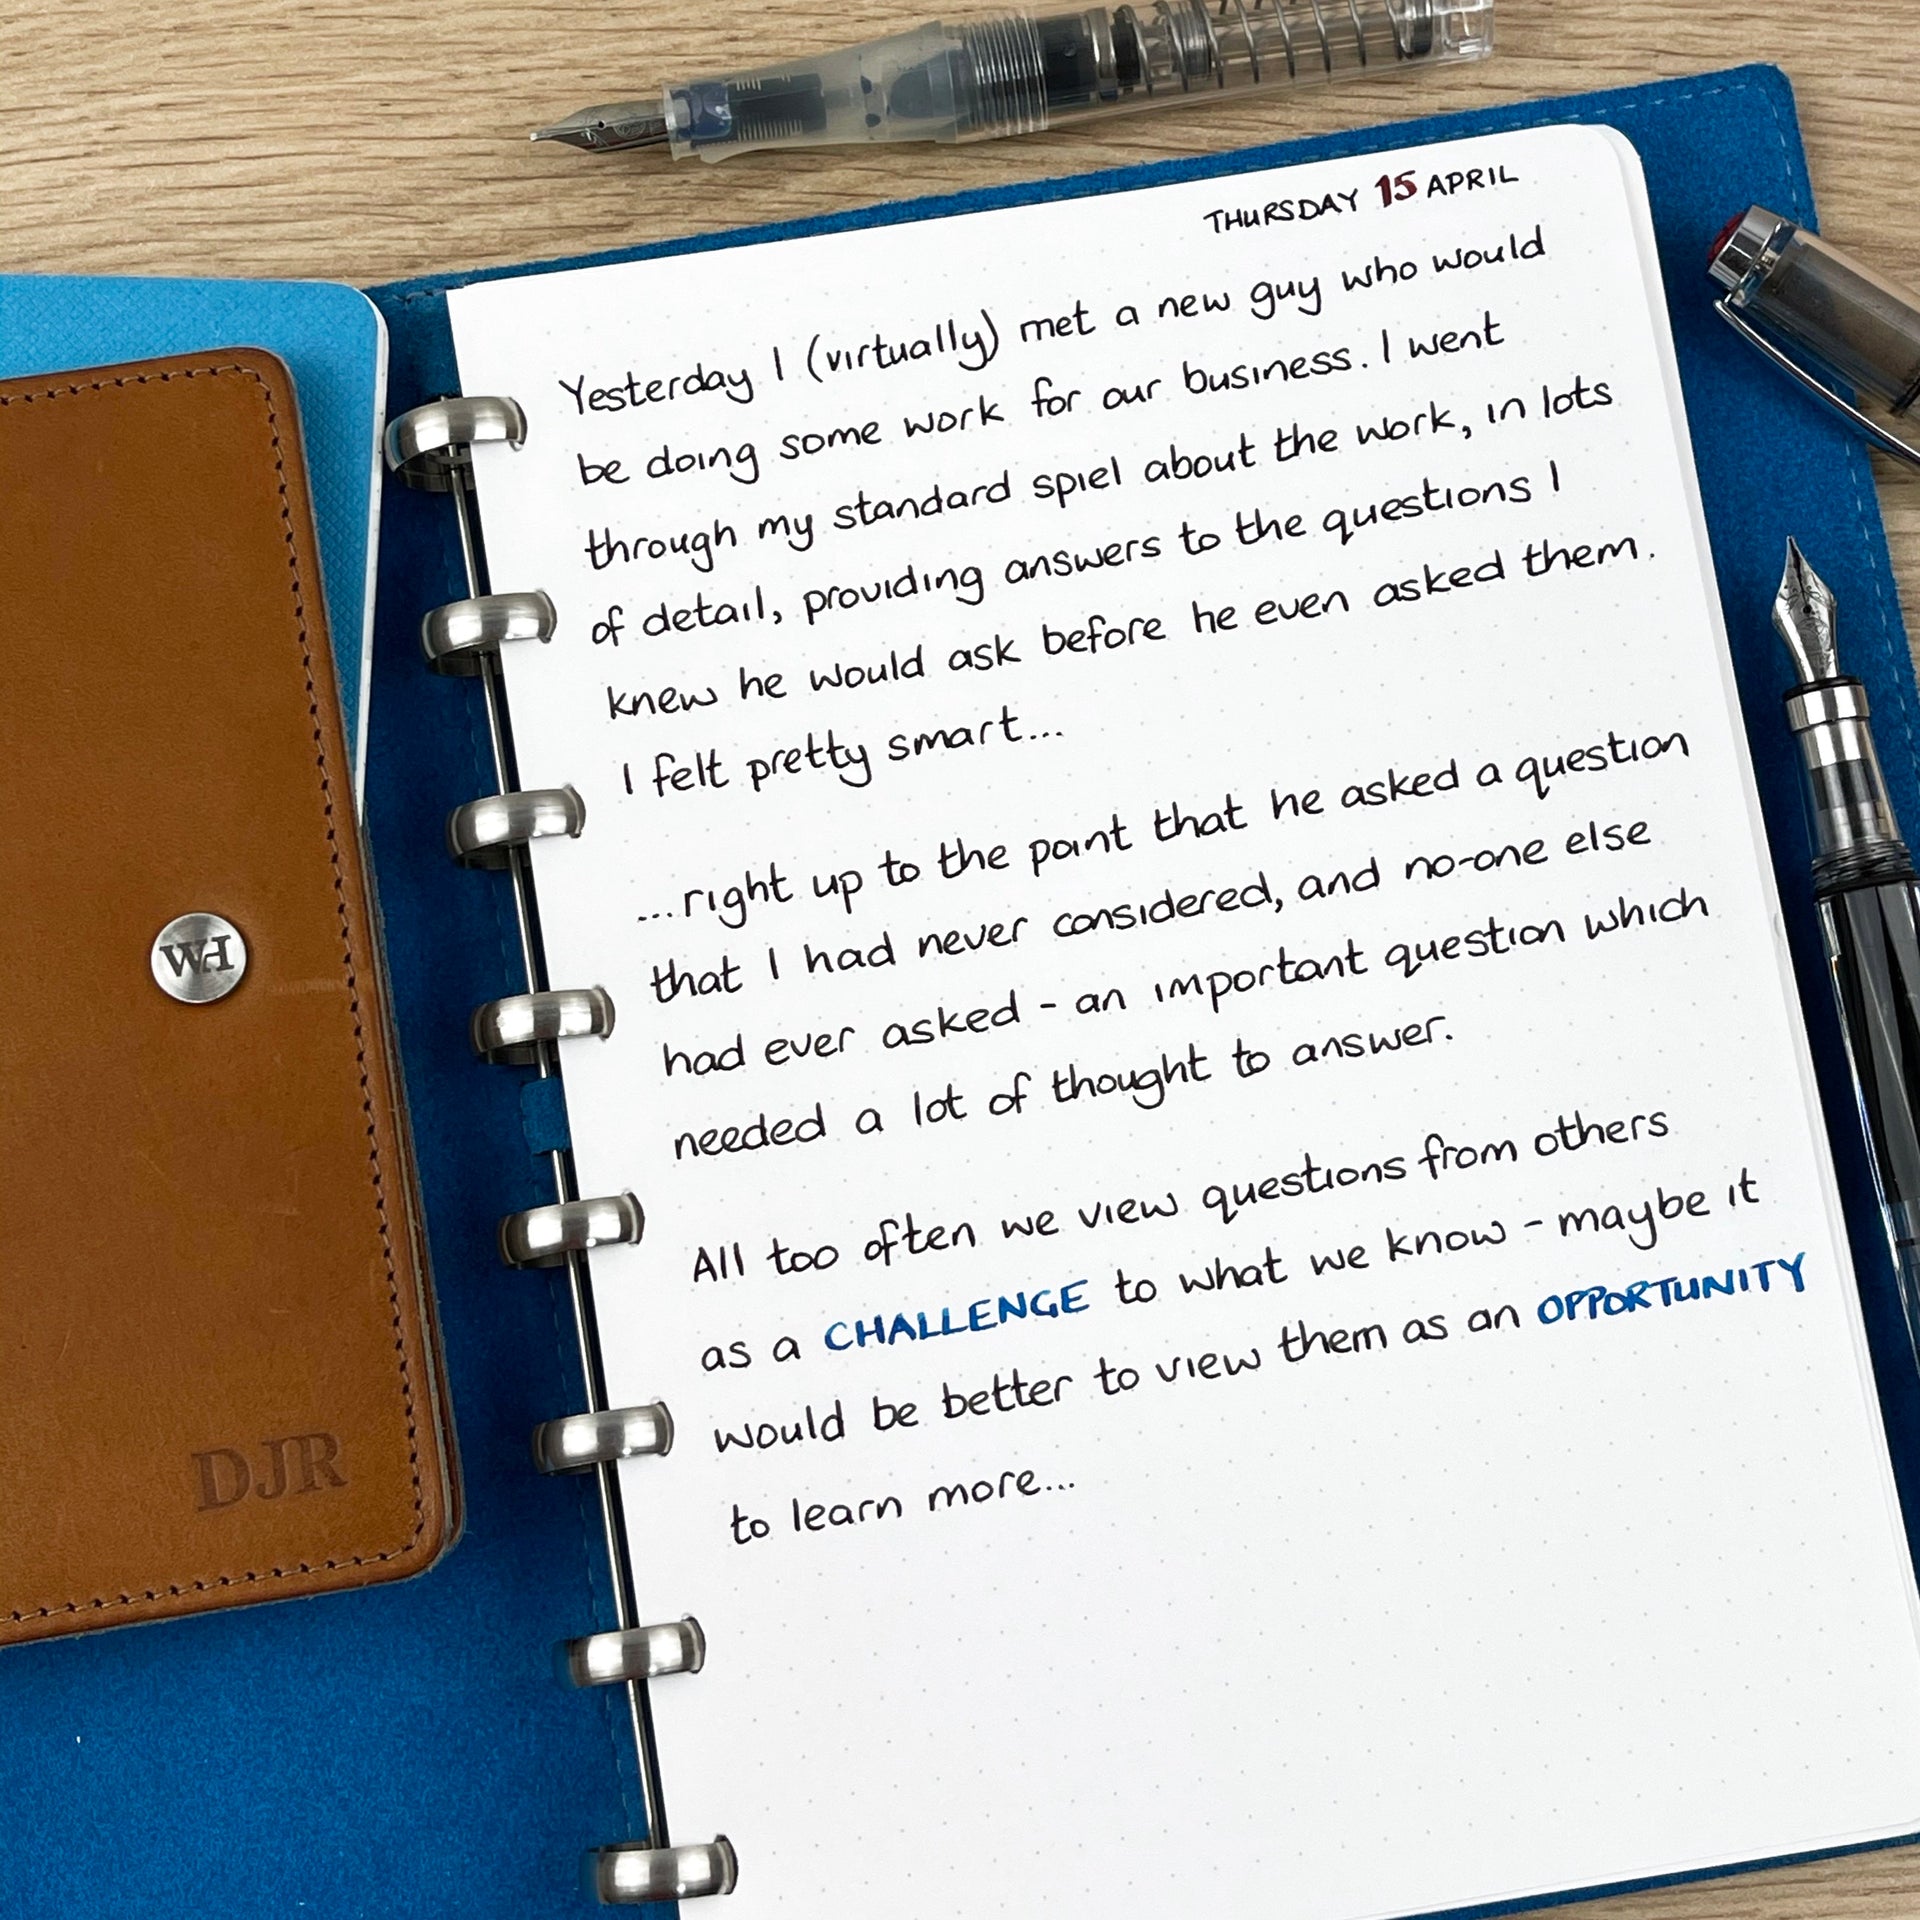 THURSDAY 15 APRIL
Yesterday I (virtually) met a new guy who would
be doing some work for our business. I went
through my standard spiel about the work, in lots
of detail, providing answers to the questions I
knew he would ask before he even asked them.
I felt pretty smart...
...right up to the point that he asked a question
that I had never considered, and no-one else
had ever asked - an important question which
needed a lot of thought to answer.
All too often we view questions from others
as a CHALLENGE to what we know - maybe it
would be better to view them as an OPPORTUNITY
to learn more...
WH
DJR